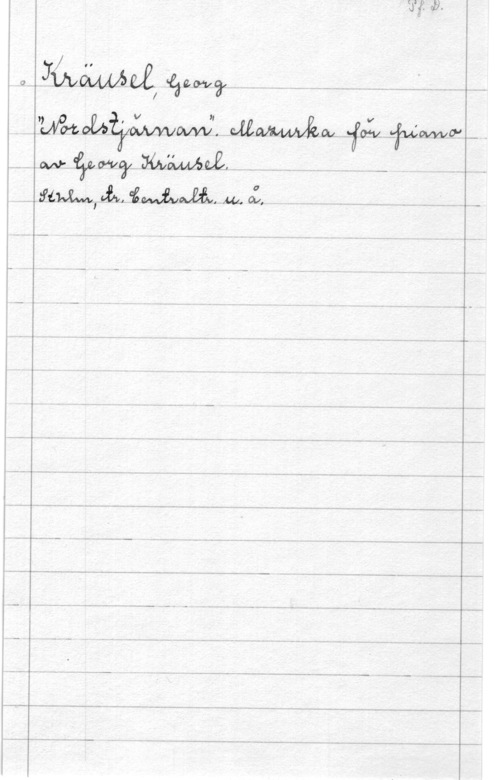 Pf. D.
Kräusel, Georg
"Nordstjärnan". Mazurka för piano
av Georg Kräusel.
Sthlm, tr. Centraltr. u. å.